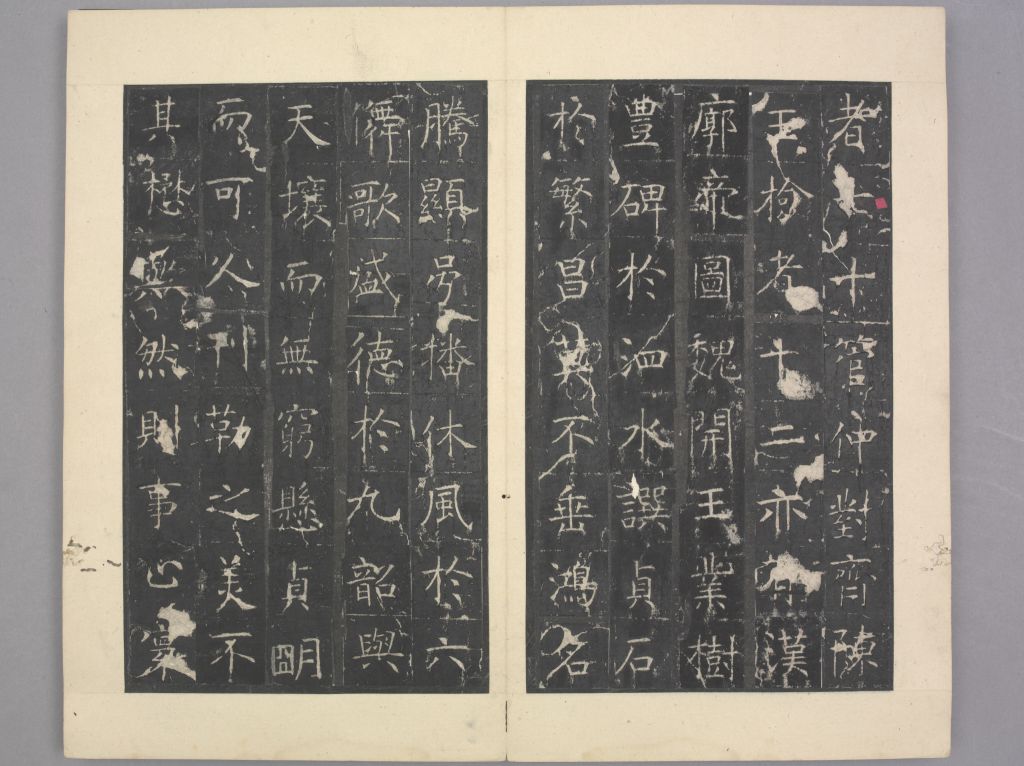 者七十管仲對齊陳
玉檢者十二亦有漢
廓帝圖魏開王業樹
豊碑於泗水譔貞石
於繁昌莫不垂鴻名
騰顯号播休風於六
儛歌盛德於九韶與
天壤而無窮懸貞明
而可久刊勒之美不
其懋與然則事止寰